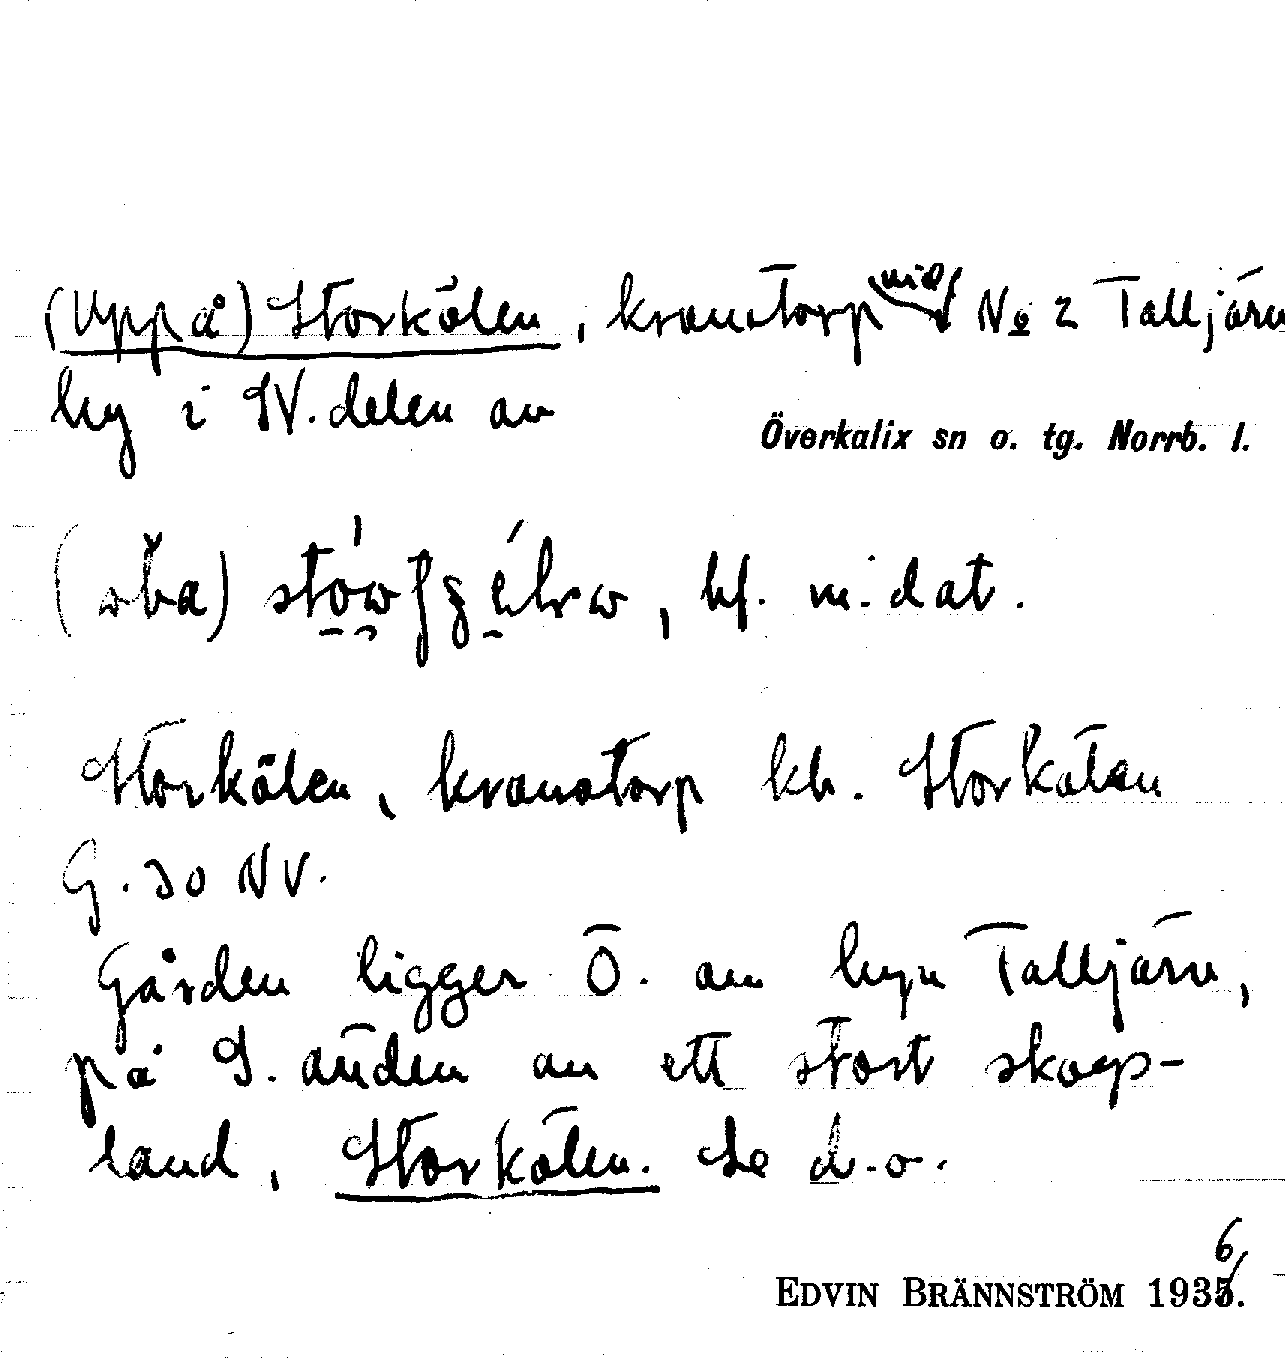 (Uppå) Storkölen, kronotorp vid No 2 Talljärn
by i SV. delen av
Överkalix sn o. tg. Norrb. l.
bf. m. dat.
Storkölen, kronotorp kb. Storkölen
G. 30 NV.
Gården ligger Ö. om byn Talljärn,
på S. änden av ett stort skogs-
land, Storkölen. Se d.o.
6
EDVIN BRÄNNSTRÖM 1935.